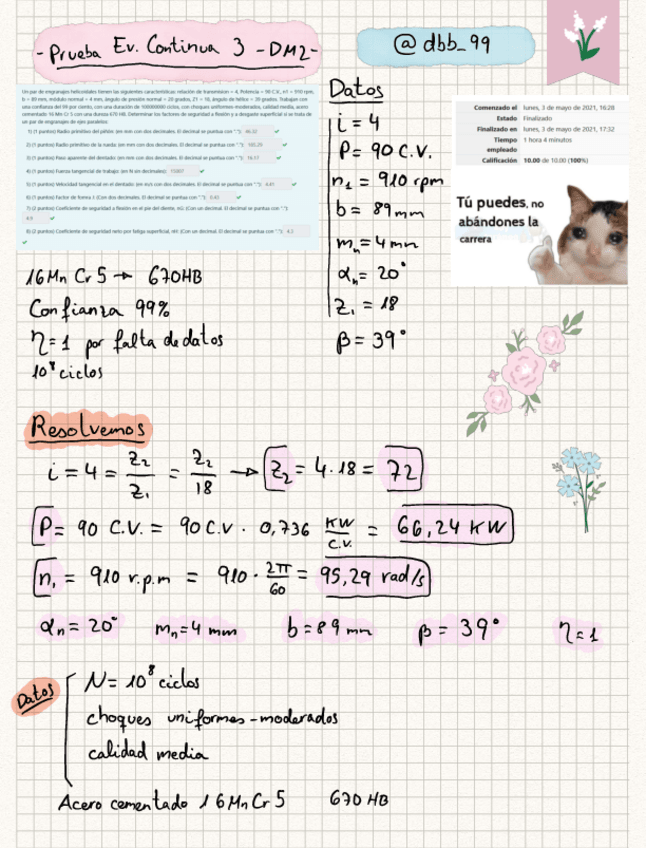 - Prueba Ev. Continua 3 - DM2 -
@dbb_99
Un par de engranajes helicoidales tienen las siguientes características: relación de transmisión = 4, Potencia = 90 C.V., n1 = 910 rpm,
b = 89 mm, módulo normal = 4 mm, ángulo de presión normal = 20 grados, Z1 = 18, ángulo de hélice = 39 grados. Trabajan con
una confianza del 99 por ciento, con una duración de 100000000 ciclos, con choques uniformes-moderados, calidad media, acero
cementado 16 Mn Cr 5 con una dureza 670 HB. Determinar los factores de seguridad a flexión y a desgaste superficial si se trata de
un par de engranajes de ejes paralelos:
1) (1 puntos) Radio primitivo del piñón: (en mm con dos decimales. El decimal se puntua con "."): 46.32
2) (1 puntos) Radio primitivo de la rueda: (en mm con dos decimales. El decimal se puntua con "."):
3) (1 puntos) Paso aparente del dentado: (en mm con dos decimales. El decimal se puntua con "."): 16.17
4) (1 puntos) Fuerza tangencial de trabajo: (en N sin decimales):
5) (1 puntos) Velocidad tangencial en el dentado: (en m/s con dos decimales. El decimal se puntua con "."): 4.41
6) (1 puntos) Factor de forma J: (Con dos decimales. El decimal se puntua con "."):
7) (1 puntos) Coeficiente de seguridad a flexión en el pie del diente, nG: (Con un decimal. El decimal se puntua con "."):
8) (2 puntos) Coeficiente de seguridad neto por fatiga superficial, nH: (Con un decimal. El decimal se puntua con "."):
Datos
i = 4
P = 90 C.V.
n₁ = 910 rpm
b = 89 mm
mₙ = 4 mm
αₙ = 20°
Z₁ = 18
β = 39°
Comenzado el lunes, 3 de mayo de 2021, 16:28
Estado Finalizado
Finalizado en lunes, 3 de mayo de 2021, 17:32
Tiempo empleado 1 hora 4 minutos
Calificación 10.00 de 10.00 (100%)
Tú puedes, no
abándones la
carrera
16 Mn Cr 5 → 670HB
Confianza 99%
η = 1 por falta de datos
10⁸ ciclos
Resolvemos
i = 4 = Z₂/Z₁ = Z₂/18 → Z₂ = 4 · 18 = 72
P = 90 C.V. = 90 C.V · 0,736 KW/C.V. = 66,24 KW
n₁ = 910 r.p.m = 910 · 2π/60 = 95,29 rad/s
αₙ = 20° mₙ = 4 mm b = 89 mm β = 39° η = 1
Datos
N = 10⁸ ciclos
choques uniformes - moderados
calidad media
Acero cementado 16 Mn Cr 5 670 HB